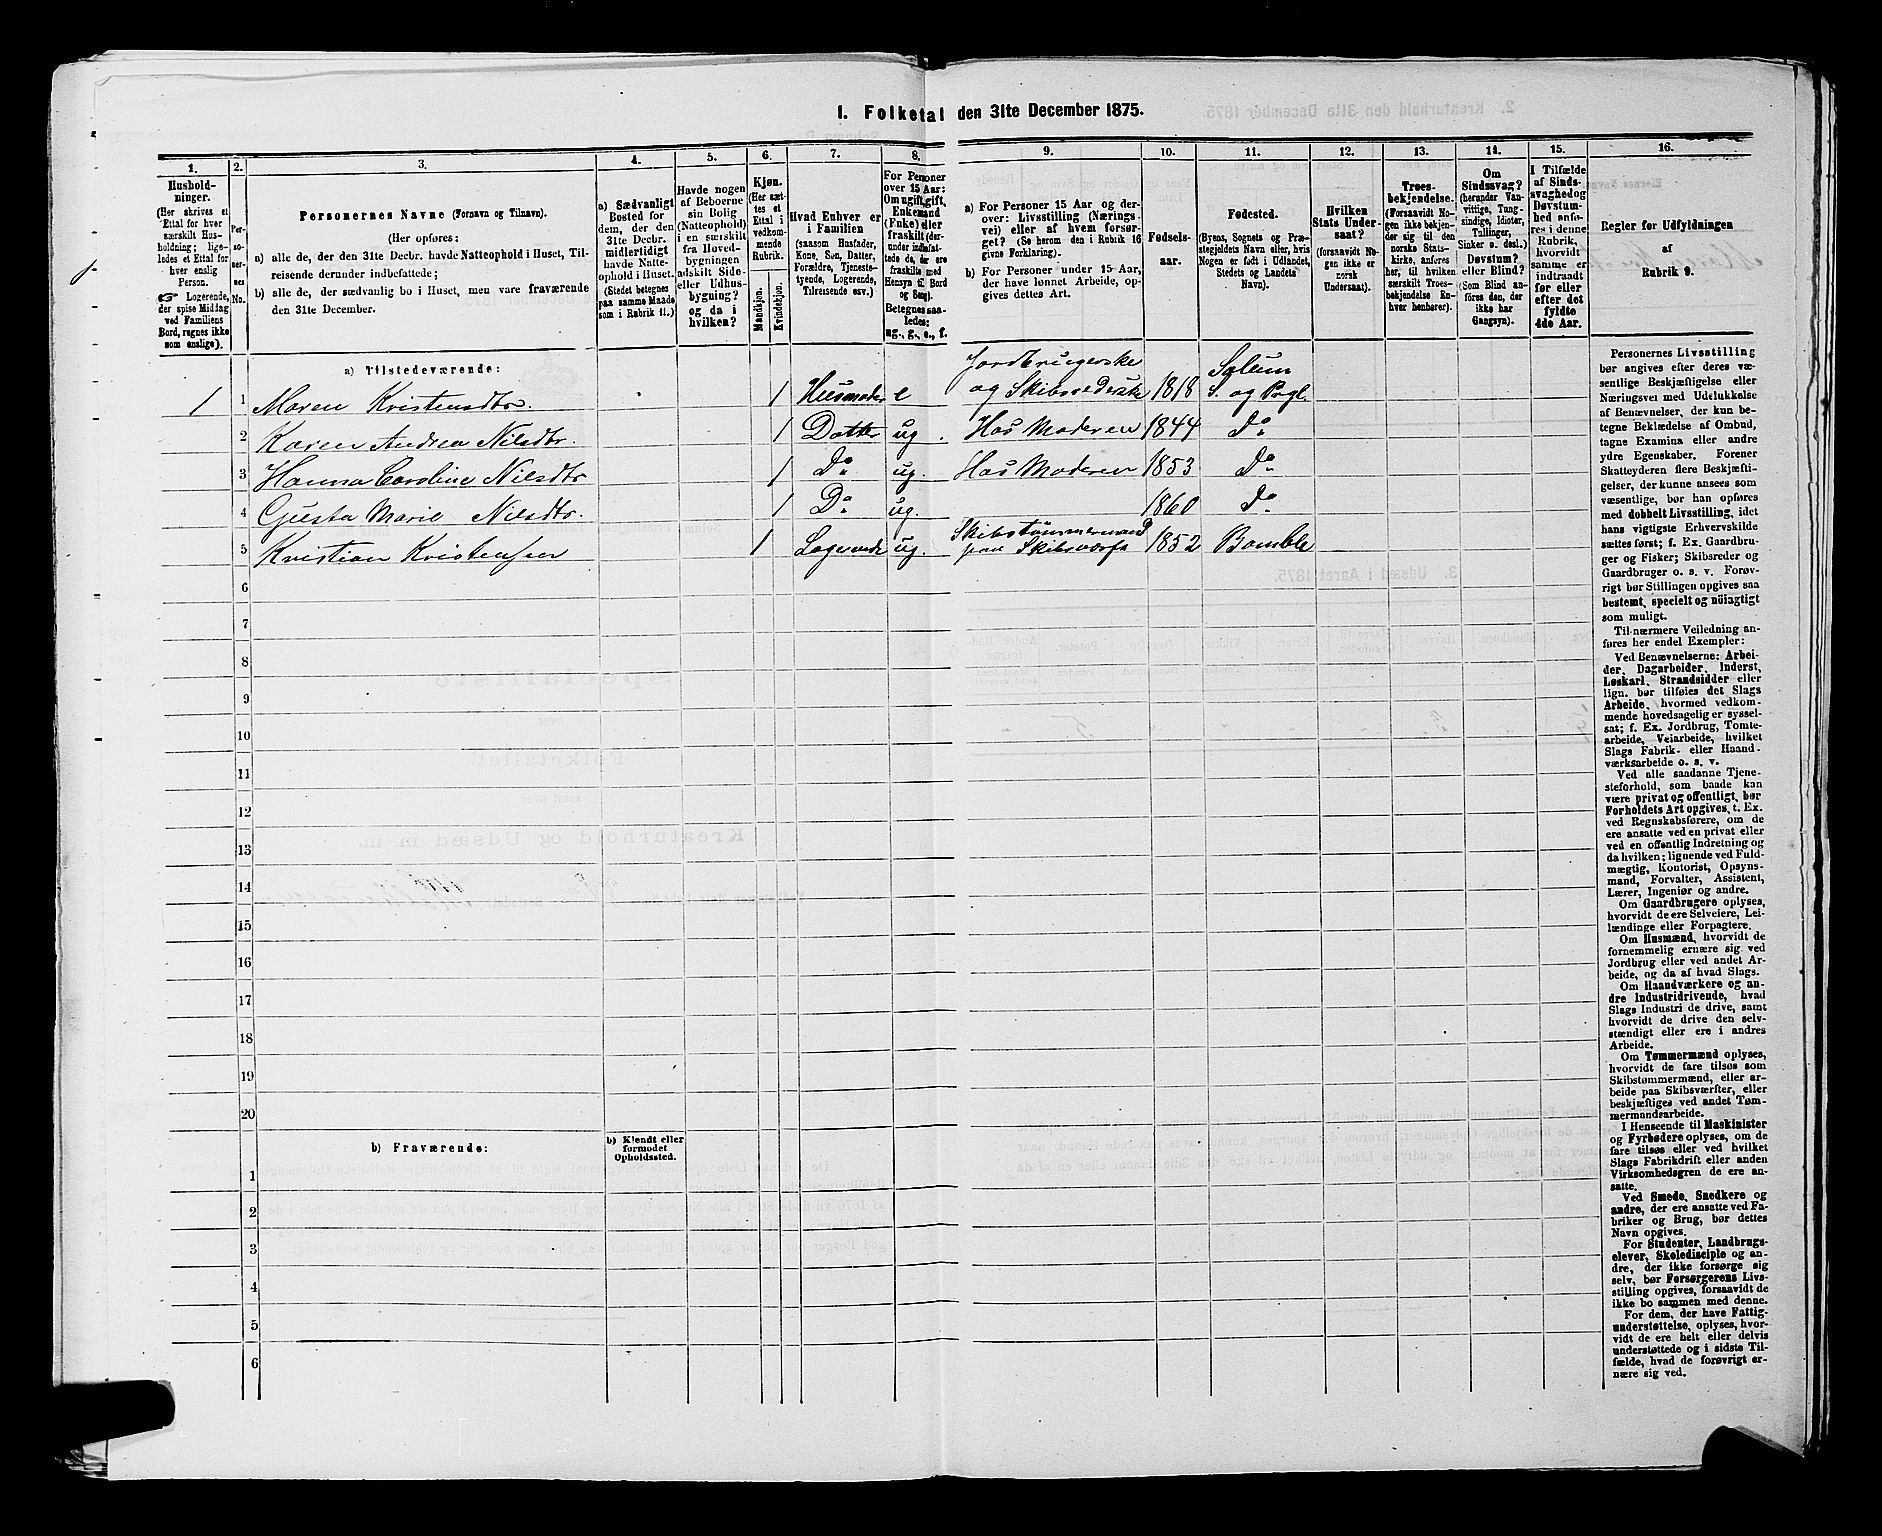 1. Folketal den 31te December 1875.
1. 2. 3. 4. 5. 6. 7. 8. 9. 10. 11. 12. 13. 14. 15. 16.
Hushold-
ninger.
(Her skrives et
Ettal for hver
særskilt Hus-
holdning; lige-
ledes et Ettal for
hver enslig
Person.
☞ Logerende,
der spise Middag
ved Familiens
Bord, regnes ikke
som enslige).
Per-
so-
ner-
nes
No.
Personernes Navne (Fornavn og Tilnavn).
(Her opføres:
a) alle de, der den 31te Decbr. havde Natteophold i Huset, Til-
reisende derunder indbefattede;
b) alle de, der sædvanlig bo i Huset, men vare fraværende
den 31te December.
a) Sædvanligt
Bosted for
dem, der den
31te Decbr.
midlertidigt
havde Natte-
ophold i Huset.
(Stedet betegnes
paa samme Maade
som i Rubrik 11.)
Havde nogen
af Beboerne
sin Bolig
(Natteophold)
i en særskilt
fra Hoved-
bygningen
adskilt Side-
eller Udhus-
bygning?
og da i
hvilken?
Kjøn.
(Her sæt-
tes et
Ettal i
vedkom-
mende
Rubrik.
Mandkjøn.
Kvindekjøn.
Hvad Enhver er
i Familien
(saasom Husfader,
Kone, Søn, Datter,
Forældre, Tjeneste-
tyende, Logerende,
Tilreisende osv.)
For Personer
over 15 Aar:
Om ugift, gift,
Enkemand
(Enke) eller
fraskilt (der-
under indbefat-
tede de, der ere
fraskilte med
Hensyn til Bord
og Seng).
Betegnes saa-
ledes:
ug., g., e., f.
a) For Personer 15 Aar og der-
over: Livsstilling (Nærings-
vei) eller af hvem forsør-
get? (Se herom den i Rubrik 16
givne Forklaring).
b) For Personer under 15 Aar,
der have lønnet Arbeide, op-
gives dettes Art.
Fødsels-
aar.
Fødested.
(Byens, Sognets og Præ-
stegjeldets Navn eller, hvis
Nogen er født i Udlandet,
Stedets og Landets
Navn).
Hvilken
Stats Under-
saat?
(forsaavidt No-
gen ikke er
norsk
Undersaat).
Troes-
bekjendelse.
(Forsaavidt No-
gen ikke bekjen-
der sig til den
norske Stats-
kirke, anføres
her, til hvilken
særskilt Troes-
bekjendelse En-
hver henhører).
Om
Sindssvag?
(herunder Van-
vittige, Tung-
sindige, Idioter,
Tullinger,
Sinker o. desl.)
Døvstum?
eller Blind?
(Som Blind an-
føres den, der
ikke har
Gangsyn).
I Tilfælde
af Sinds-
svaghed og
Døvstum-
hed anfø-
res i denne
Rubrik,
hvorvidt
samme er
indtraadt
før eller
efter det
fyldte
4de Aar.
Regler for Udfyldningen
af
Rubrik 9.
a) Tilstedeværende:
1 1 Maren Kristensdtr. 1 Husmoder e Jordbrugerske og Skibsrederske 1818 Solum S. og Prgl.
2 Karen Andrea Nilsdtr. 1 Datter ug. Hos Moderen 1844 Do
3 Hanna Caroline Nilsdtr 1 Do ug. Hos Moderen 1853 Do
4 Gusta Marie Nilsdtr. 1 Do ug 1860 Do
5 Kristian Kristensen 1 Logerende ug. Skibstømmermand paa Skibsværft 1852 Bamble
6
7
8
9
10
11
12
13
14
15
16
17
18
19
20
b) Fraværende:
b) Kjendt eller
formodet
Opholdssted.
1
2
3
4
5
6
Personernes Livsstilling
bør angives efter deres væ-
sentlige Beskjæftigelse eller
Næringsvei med Udelukkelse
af Benævnelser, der kun be-
tegne Beklædelse af Ombud,
tagne Examina eller andre
ydre Egenskaber. Forener
Skatteyderen flere Beskjæfti-
gelser, der kunne ansees som
væsentlige, bør han opføres
med dobbelt Livsstilling, idet
hans vigtigste Erhvervskilde
sættes først; f. Ex. Gaardbru-
ger og Fisker; Skibsreder og
Gaardbruger o. s. v. Forøv-
rigt bør Stillingen opgives saa
bestemt, specielt og nøiagtigt
som muligt.
Til nærmere Veiledning an-
føres her endel Exempler:
Ved Benævnelserne: Arbei-
der, Dagarbeider, Inderst,
Løskarl, Strandsidder eller
lign. bør tilføies det Slags
Arbeide, hvormed vedkom-
mende hovedsagelig er syssel-
sat; f. Ex. Jordbrug, Tomte-
arbeide, Veiarbeide, hvilket
Slags Fabrik- eller Haand-
værksarbeide o. s. v.
Ved alle saadanne Tjene-
steforhold, som baade kan
være privat og offentligt, bør
Forholdets Art opgives, t. Ex.
ved Regnskabsførere, om de
ere ansatte ved en privat eller
ved en offentlig Indretning og
da hvilken; lignende ved Fuld-
mægtig, Kontorist, Opsyns-
mand, Forvalter, Assistent,
Lærer, Ingeniør og andre.
Om Gaardbrugere oplyses,
hvorvidt de ere Selveiere, Lei-
lændinge eller Forpagtere.
Om Husmænd, hvorvidt de
fornemmelig ernære sig ved
Jordbrug eller ved andet Ar-
beide, og da af hvad Slags.
Om Haandværkere og an-
dre Industridrivende, hvad
Slags Industri de drive, samt
hvorvidt de drive den selv-
stændigt eller ere i andres
Arbeide.
Om Tømmermænd oplyses,
hvorvidt de fare tilsøs som
Skibstømmermænd, eller ar-
beide paa Skibsværfter, eller
beskjæftiges ved andet Tøm-
mermandsarbeide.
I Henseende til Maskinister
og Fyrbødere oplyses, om de
fare tilsøs eller ved hvilket
Slags Fabrikdrift eller anden
Virksomhedsgren de ere an-
satte.
Ved Smede, Snedkere og
andre, der ere ansatte ved Fa-
briker og Brug, bør dettes
Navn opgives.
For Studenter, Landbrugs-
elever, Skoledisciple og an-
dre, der ikke forsørge sig
selv, bør Forsørgerens Livs-
stilling opgives, forsaavidt de
ikke bo sammen med denne.
For dem, der have Fattig-
understøttelse, oplyses, hvor-
vidt de ere helt eller delvis
understøttede og i sidste Til-
fælde, hvad de forøvrigt er-
nære sig ved.